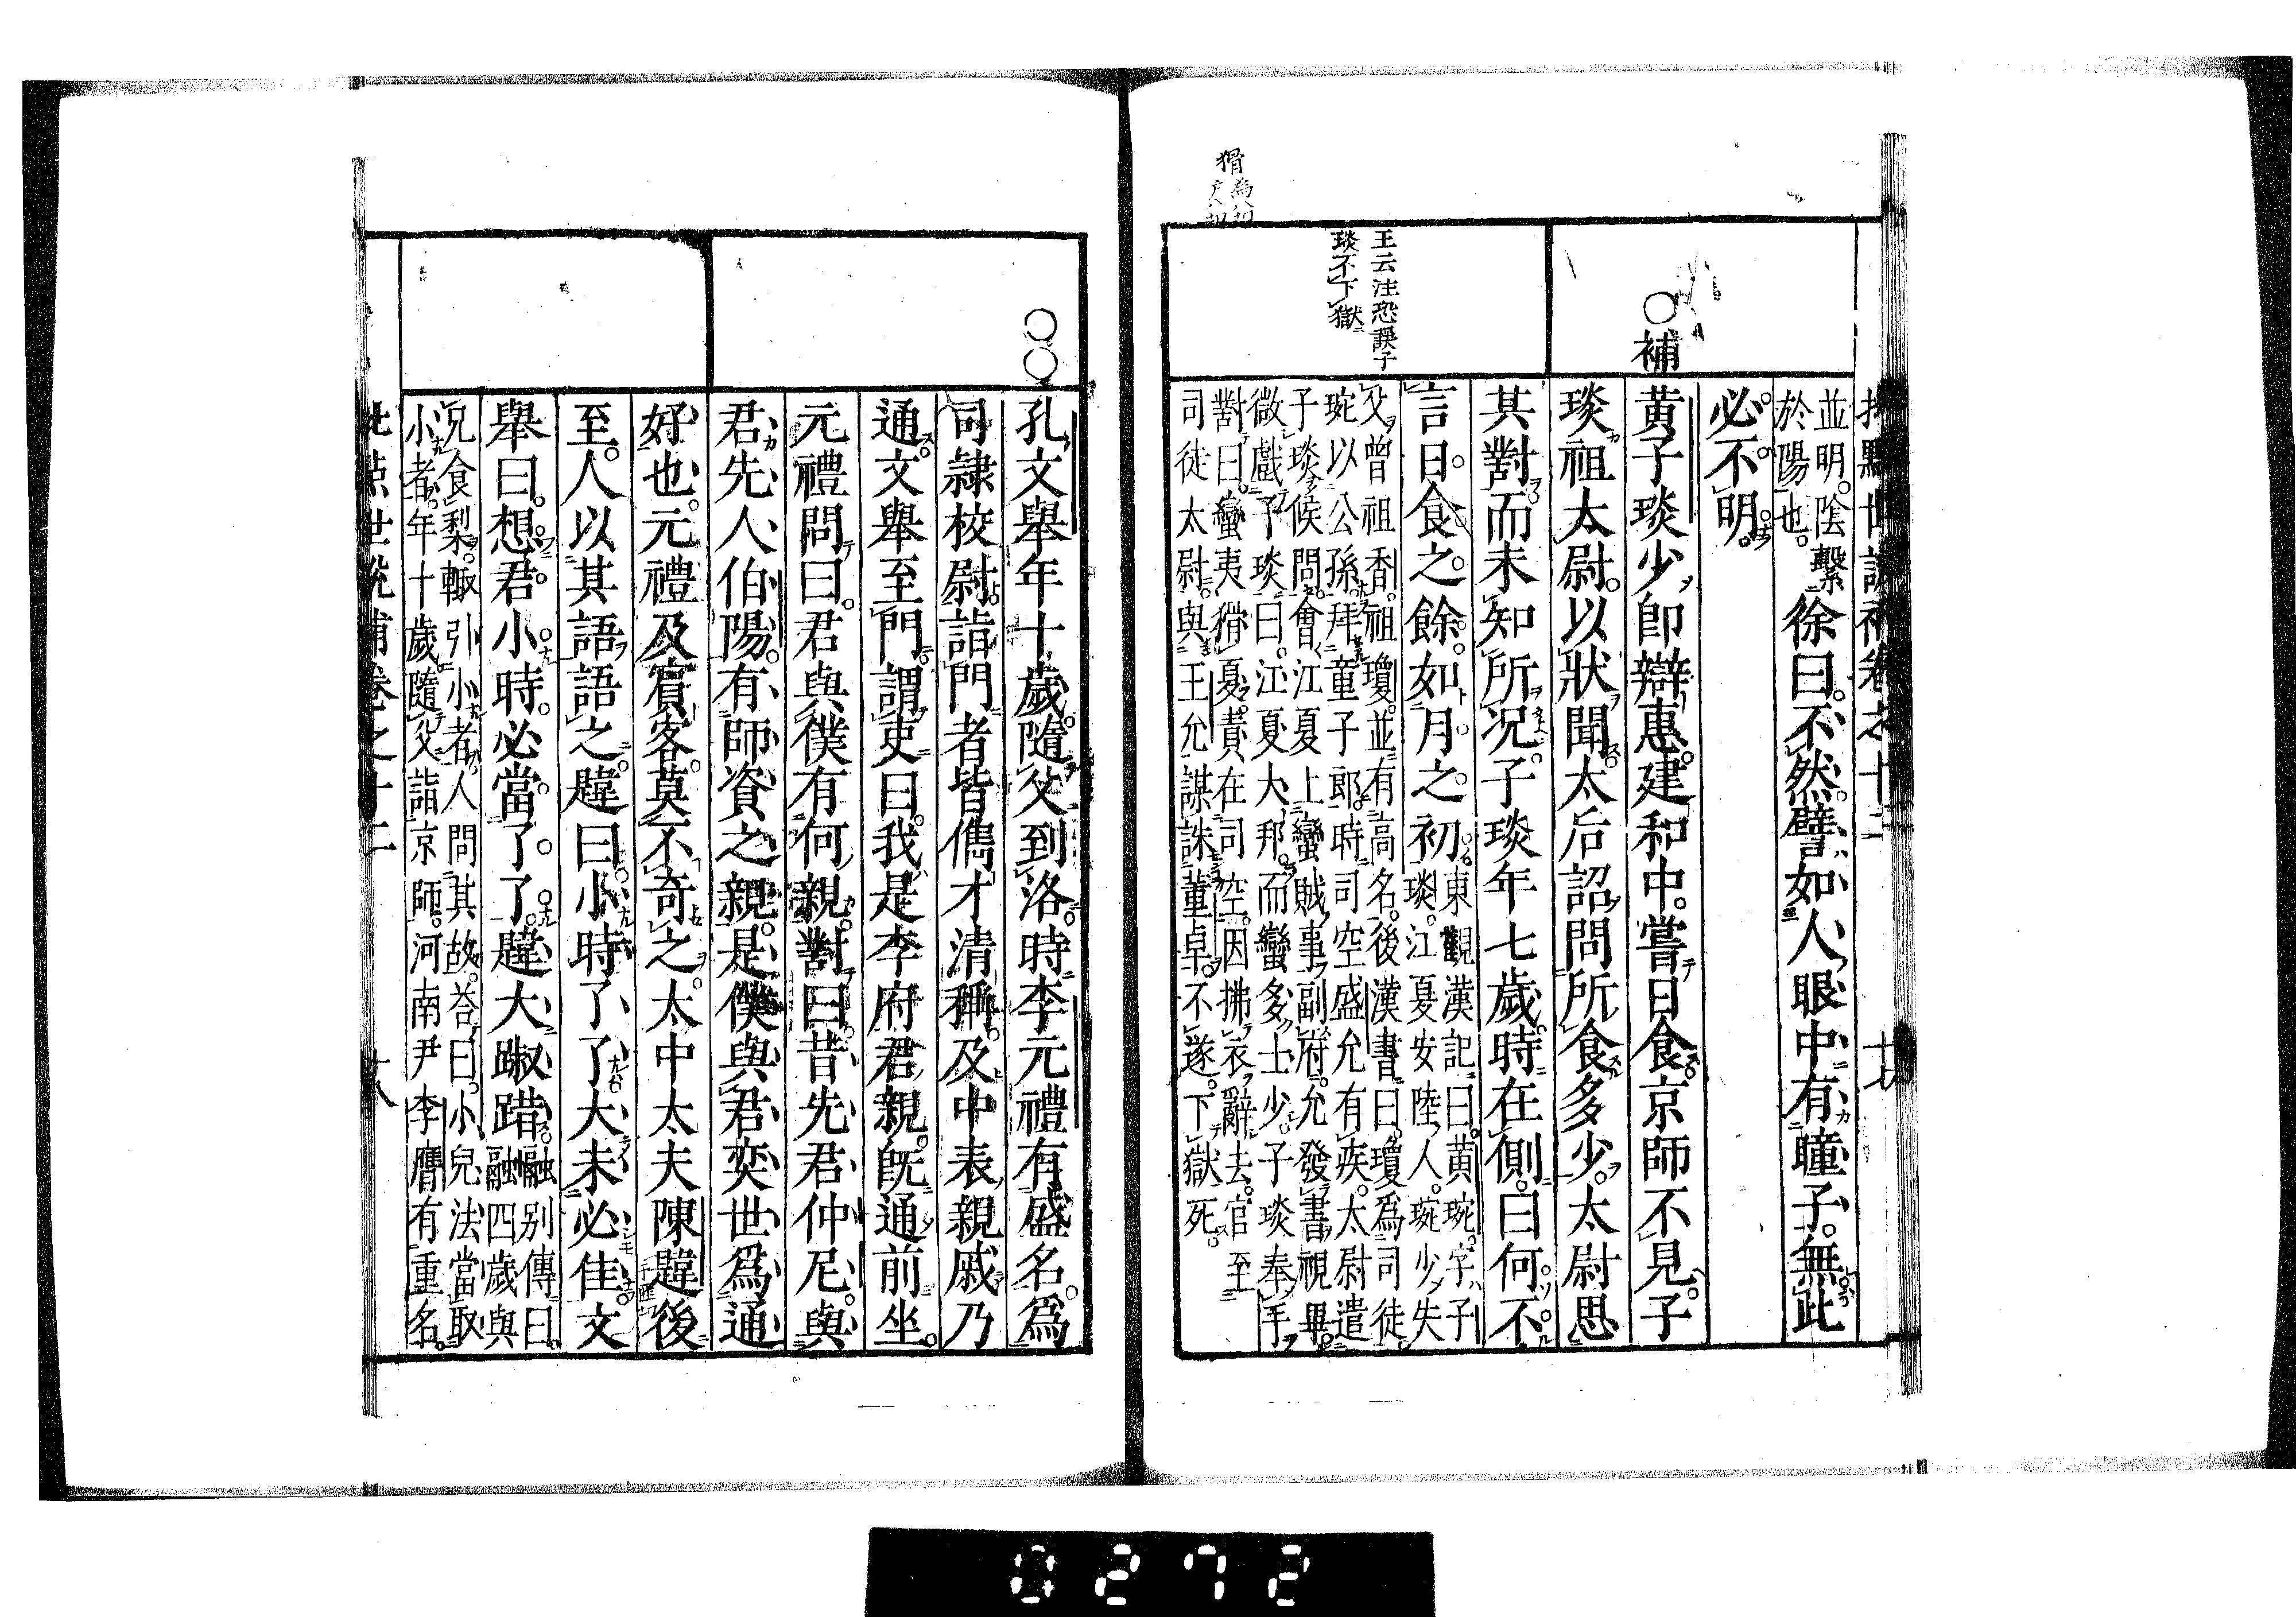 批點世說補卷之十二
並明。陰繫
於陽也。
徐曰。不然。譬如人眼中有瞳子。無此
必不明。
○補
黄子琰少即辯惠。建和中。嘗日食京師不見。子
琰祖太尉。以狀聞太后詔問所食多少。太尉思
其對而未知所况。子琰年七歲。時在側。曰何不
言日食之餘。如月之初。
東觀漢記曰。黄琬。字子
琰。江夏安陸人。琬少失
父曾祖香。祖瓊。並有高名。後漢書曰。瓊爲司徒。
琬以公孫。拜童子郎。時司空盛允有疾。太尉遣
子琰候問。會江夏上蠻賊事。副府。允發書視畢。
微戲子琰曰。江夏大邦。而蠻多士少。子琰奉手
對曰。蠻夷猾夏。責在司空。因拂衣辭去。官至
司徒太尉。與王允謀誅董卓。不遂。下獄死。
王云注恐誤子
琰不下獄
猾
○○
孔文舉年十歲。隨父到洛。時李元禮有盛名。爲
司隷校尉。詣門者皆儁才清稱。及中表親戚乃
通。文舉至門。謂吏曰。我是李府君親。旣通前坐。
元禮問曰。君與僕有何親。對曰。昔先君仲尼。與
君先人伯陽。有師資之親。是僕與君奕世爲通
好也。元禮及賓客。莫不奇之。太中太夫陳韙後
至。人以其語語之。韙曰。小時了了大未必佳。文
舉曰。想君小時。必當了了。韙大踧踖。
融别傳曰。
融四歲與
兄食梨。輙引小者。人問其故。荅曰。小兒法當取
小者。年十歲隨父詣京師。河南尹李膺有重名。
批点世說補卷之十二
十八
0272